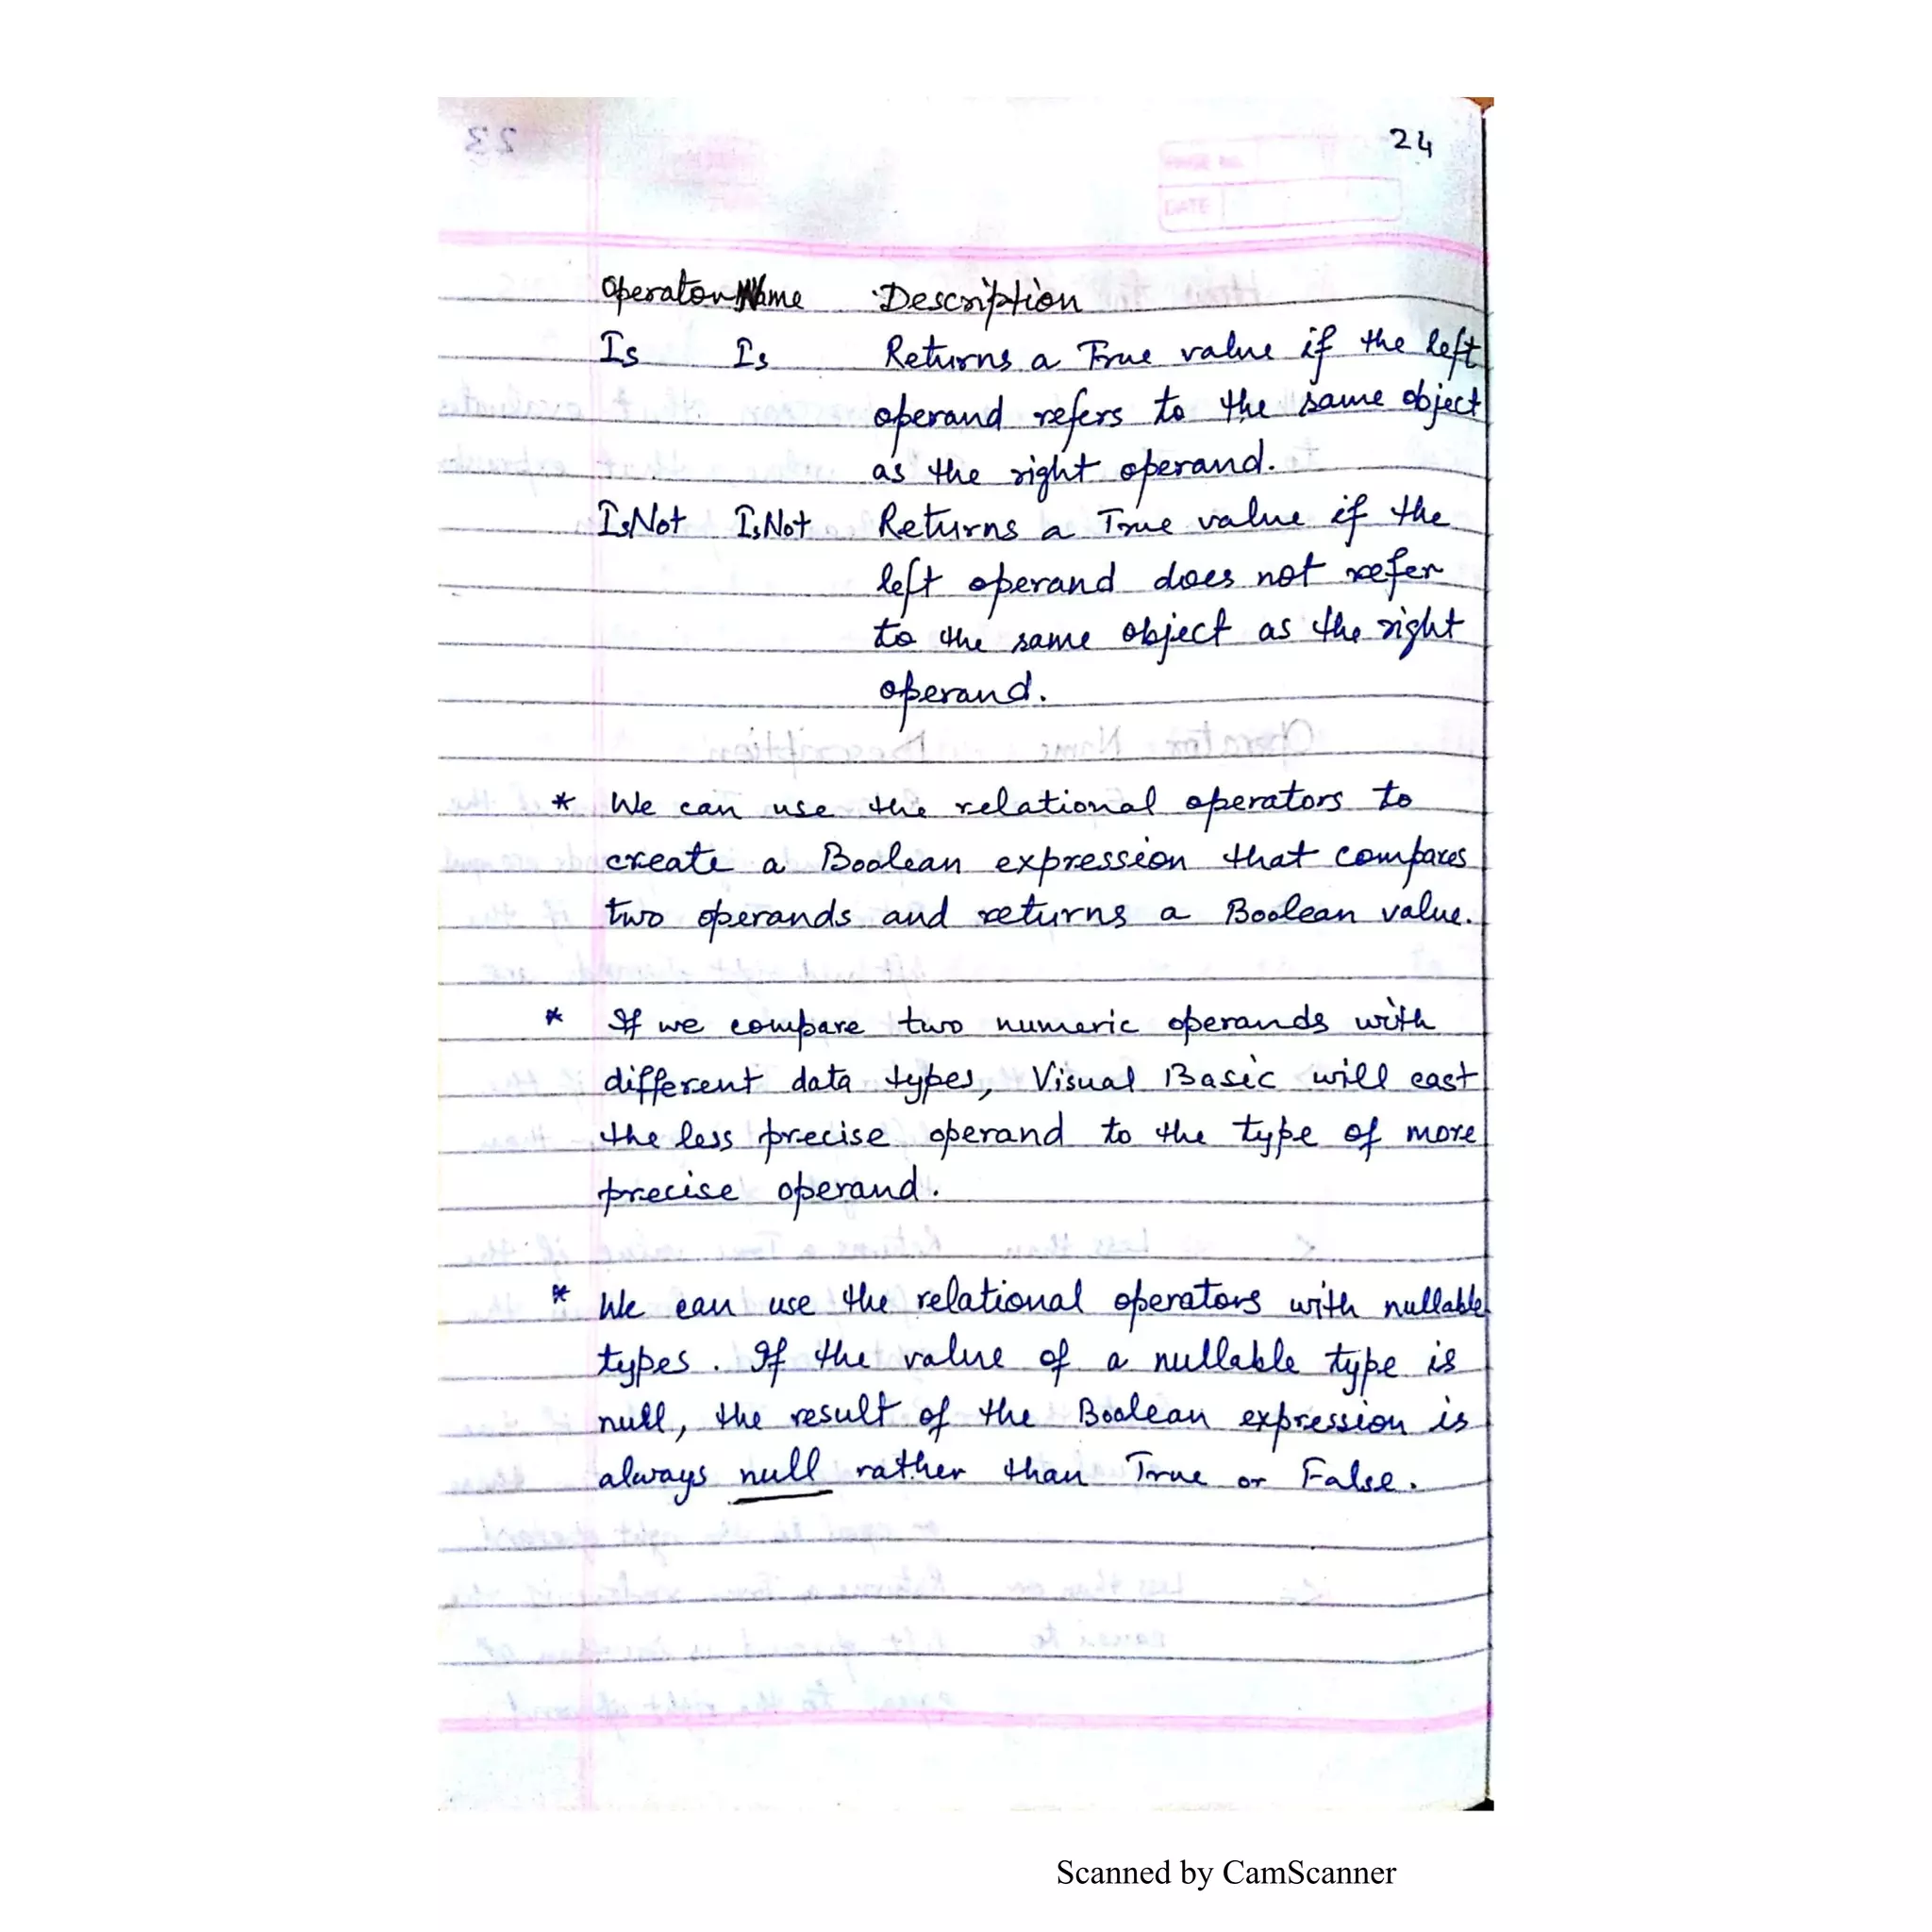 24
PAGE NO.
DATE
Operator Name Description
Is Is Returns a True value if the left
operand refers to the same object
as the right operand.
IsNot IsNot Returns a True value if the
left operand does not refer
to the same object as the right
operand.
* We can use the relational operators to
create a Boolean expression that compares
two operands and returns a Boolean value.
* If we compare two numeric operands with
different data types, Visual Basic will cast
the less precise operand to the type of more
precise operand.
* We can use the relational operators with nullable
types. If the value of a nullable type is
null, the result of the Boolean expression is
always null rather than True or False.
Scanned by CamScanner